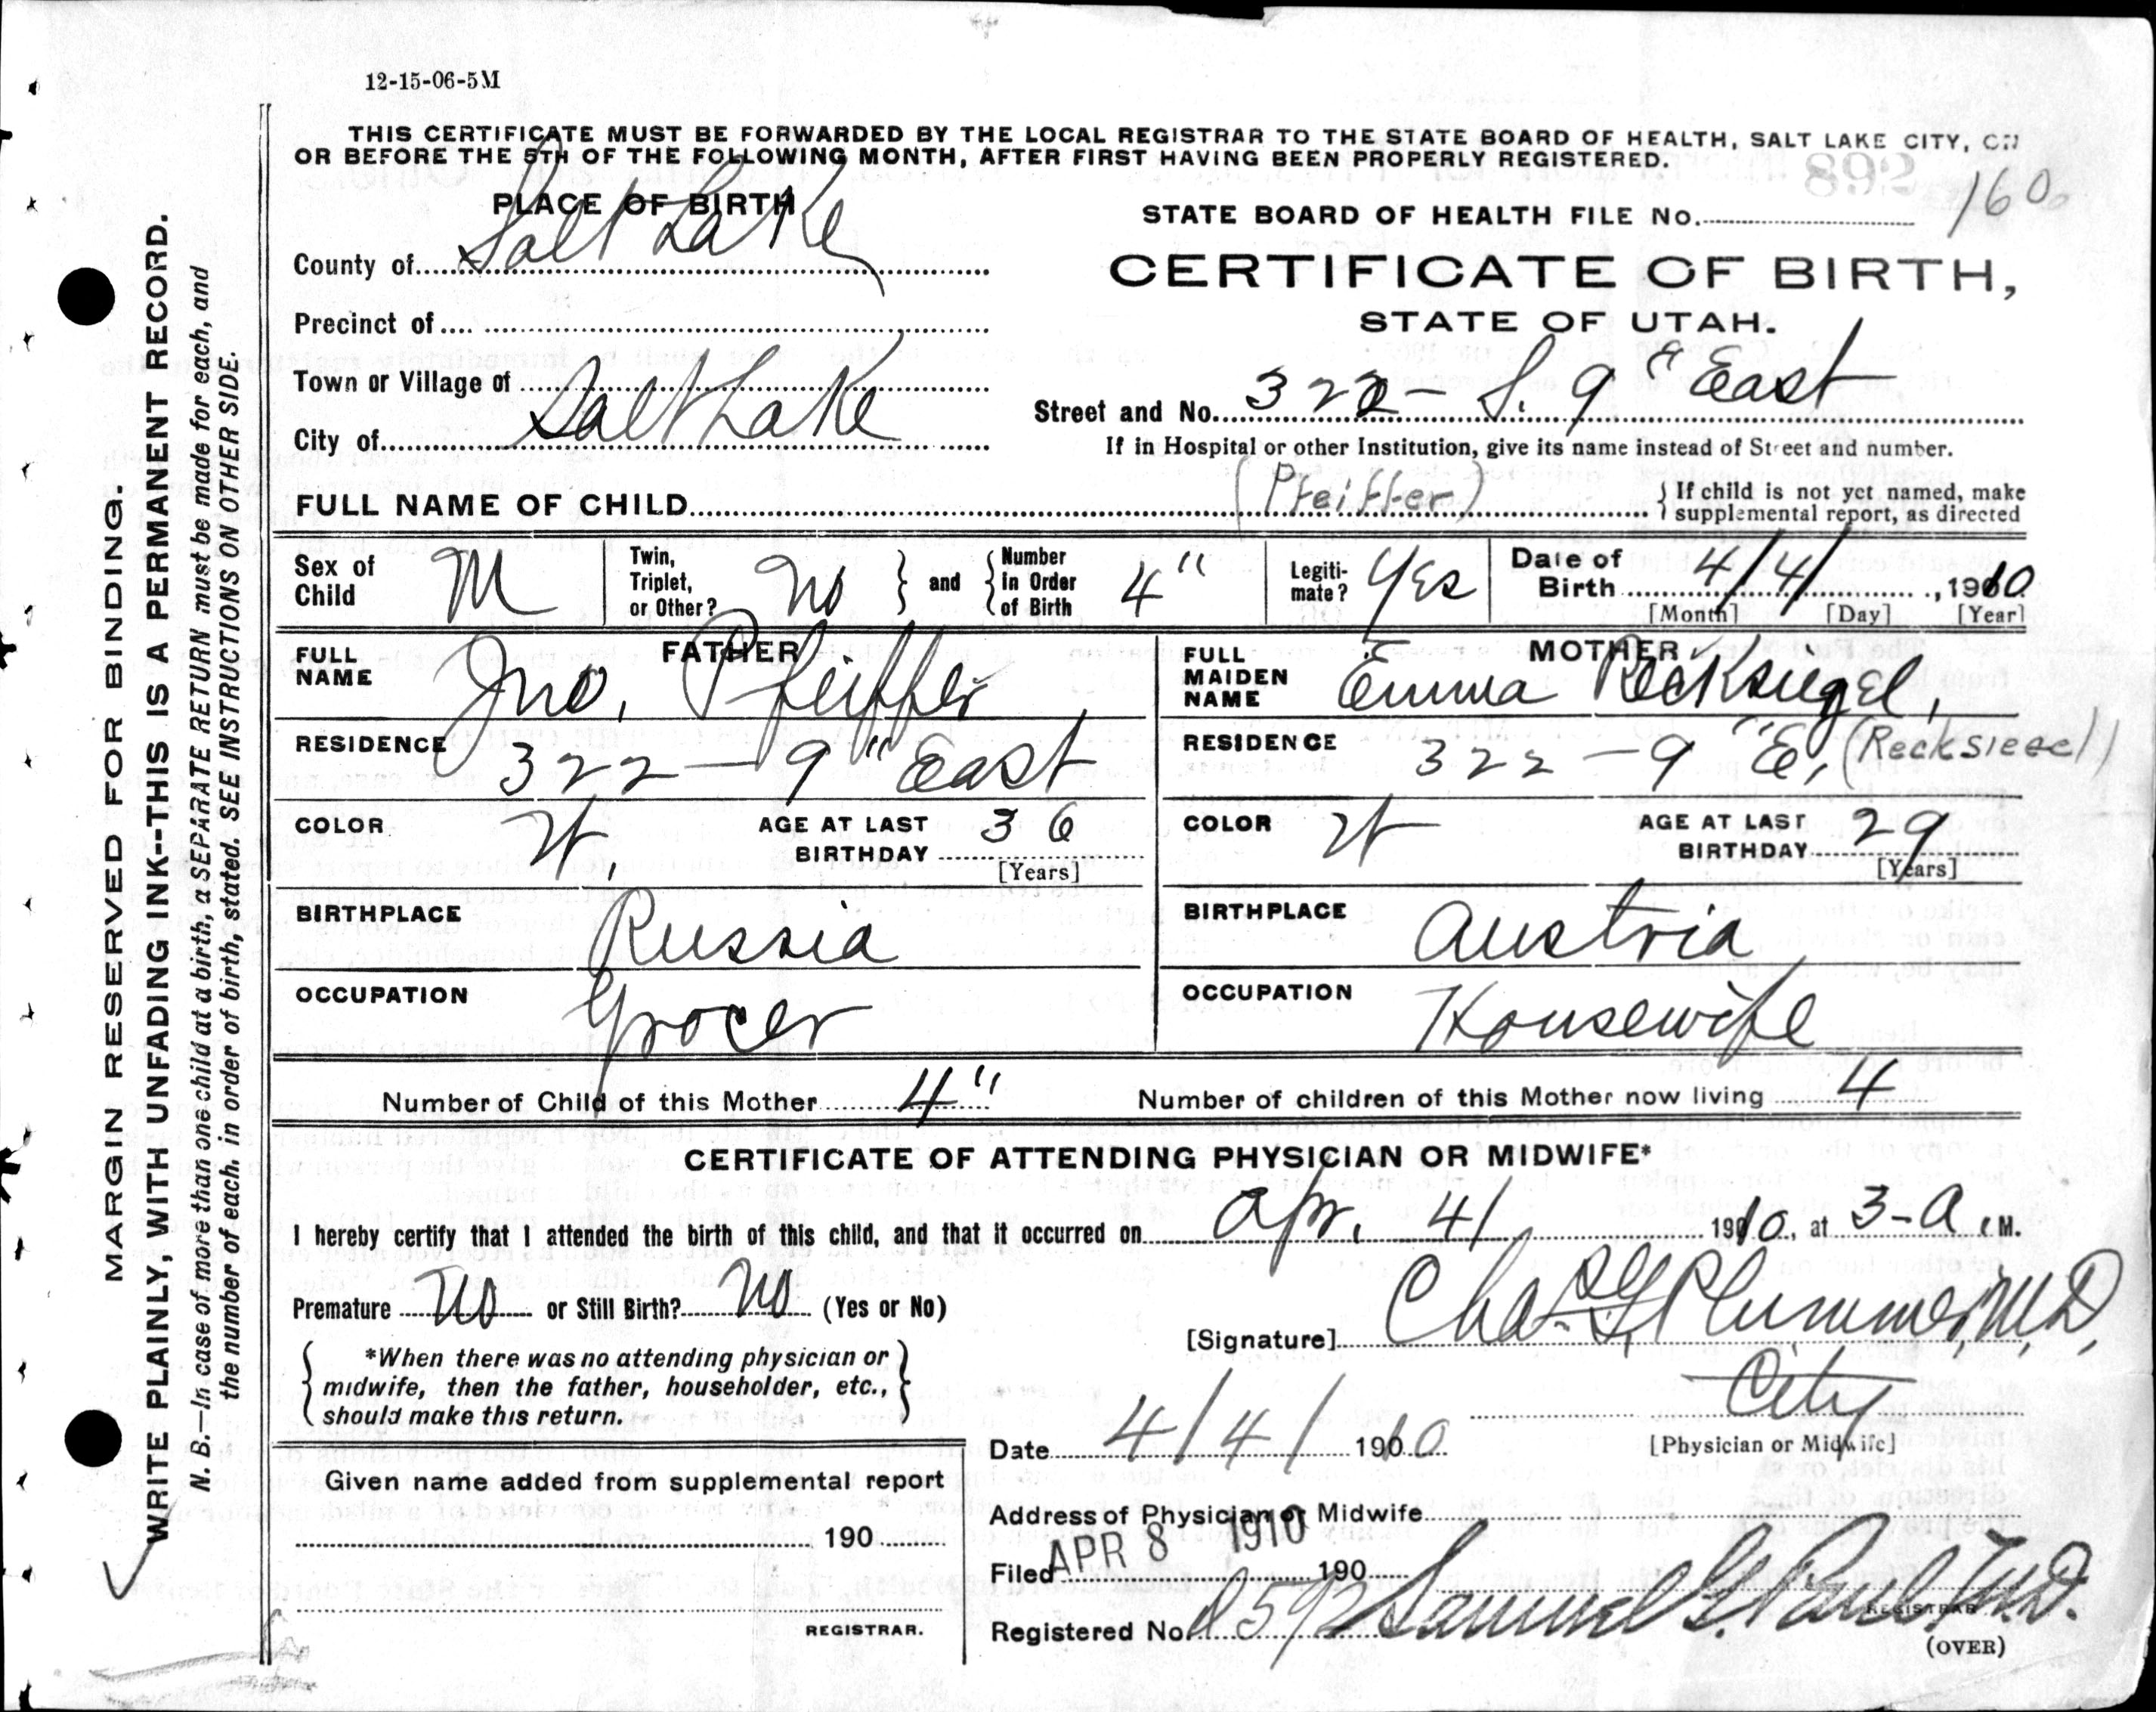 12-15-06-5M
THIS CERTIFICATE MUST BE FORWARDED BY THE LOCAL REGISTRAR TO THE STATE BOARD OF HEALTH, SALT LAKE CITY, ON
OR BEFORE THE 5TH OF THE FOLLOWING MONTH, AFTER FIRST HAVING BEEN PROPERLY REGISTERED.
PLACE OF BIRTH
County of Salt Lake
Precinct of
Town or Village of
City of Salt Lake
298
STATE BOARD OF HEALTH FILE No.
CERTIFICATE OF BIRTH,
STATE OF UTAH.
Street and No. 322 - S. 9" East
If in Hospital or other Institution, give its name instead of Street and number.
FULL NAME OF CHILD (Pfeiffer) If child is not yet named, make
supplemental report, as directed
Sex of Child M
Twin, Triplet, or Other? No and Number in Order of Birth 4"
Legiti-mate? Yes
Date of Birth 4/4/, 1910
[Month] [Day] [Year]
FATHER
FULL NAME Jno. Pfeiffer
RESIDENCE 322 - 9" East
COLOR W. AGE AT LAST BIRTHDAY 36
[Years]
BIRTHPLACE Russia
OCCUPATION Grocer
MOTHER
FULL MAIDEN NAME Emma Recksiegel,
RESIDENCE 322 - 9" E, (Recksiegel)
COLOR W AGE AT LAST BIRTHDAY 29
[Years]
BIRTHPLACE Austria
OCCUPATION Housewife
Number of Child of this Mother 4" Number of children of this Mother now living 4
CERTIFICATE OF ATTENDING PHYSICIAN OR MIDWIFE*
I hereby certify that I attended the birth of this child, and that it occurred on Apr. 4/ 1910, at 3-A. M.
Premature No or Still Birth? No (Yes or No)
[Signature] Chas. G. Plummer, M.D,
City
[Physician or Midwife]
*When there was no attending physician or
midwife, then the father, householder, etc.,
should make this return.
Date 4/4/ 1910
Given name added from supplemental report
190
REGISTRAR.
Address of Physician or Midwife
Filed APR 8 1910 190
Registered No. 592 Samuel G. Paul M.D.
REGISTRAR
(OVER)
MARGIN RESERVED FOR BINDING.
WRITE PLAINLY, WITH UNFADING INK--THIS IS A PERMANENT RECORD.
N. B.—In case of more than one child at a birth, a SEPARATE RETURN must be made for each, and
the number of each, in order of birth, stated. SEE INSTRUCTIONS ON OTHER SIDE.